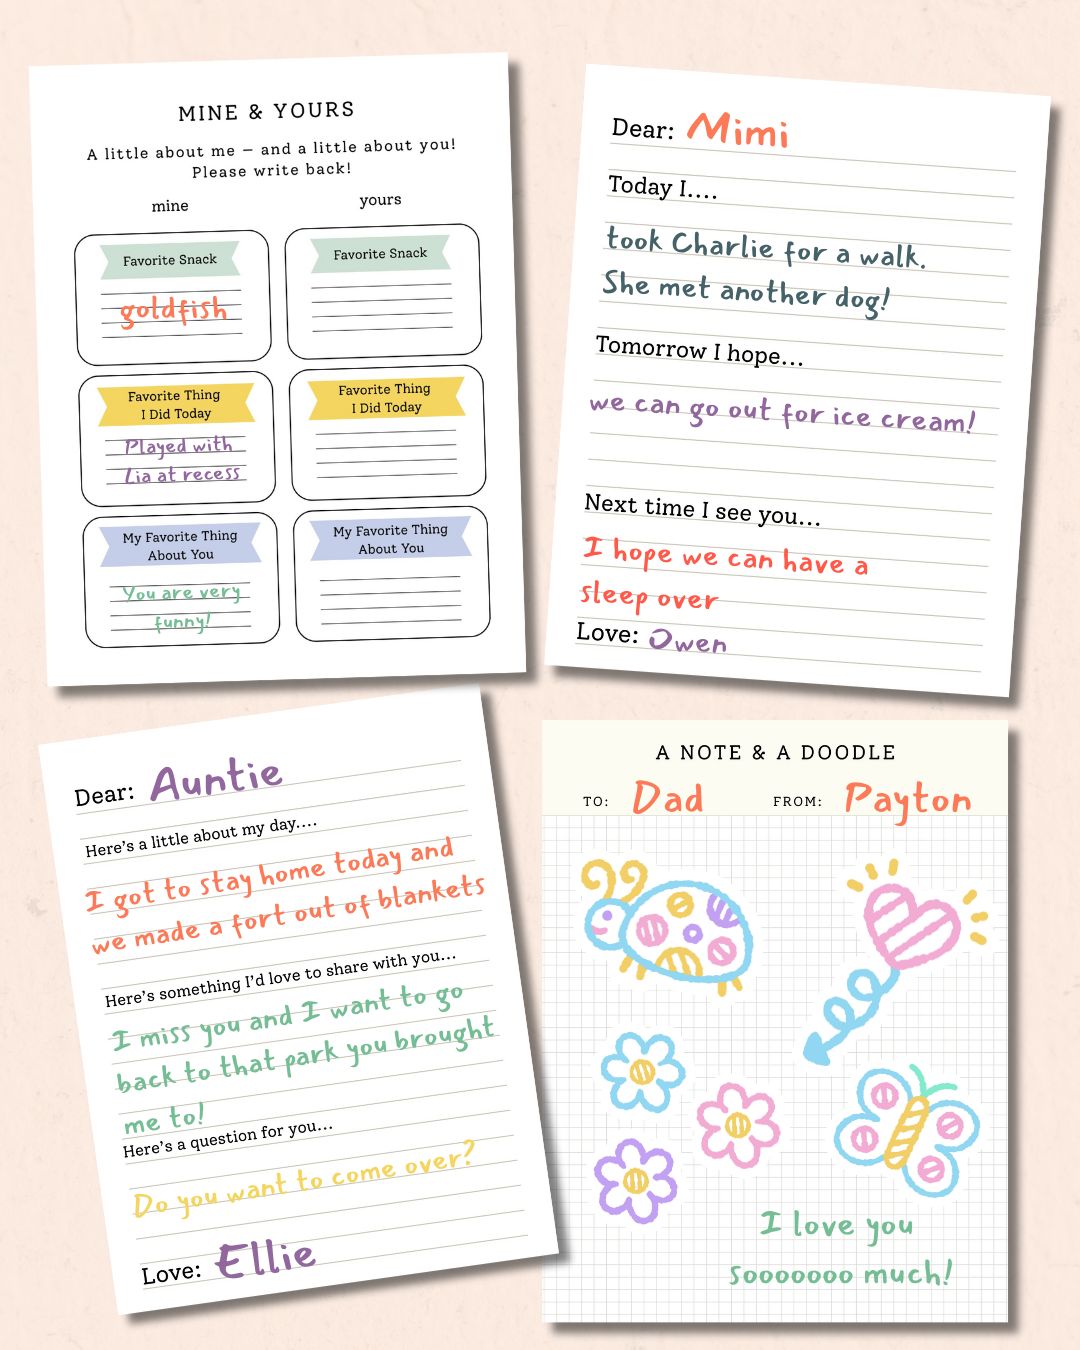 MINE & YOURS
A little about me – and a little about you!
Please write back!
mine
yours
Favorite Snack
goldfish
Favorite Snack
Favorite Thing
I Did Today
Played with
Lia at recess
Favorite Thing
I Did Today
My Favorite Thing
About You
You are very
funny!
My Favorite Thing
About You
Dear: Mimi
Today I....
took Charlie for a walk.
She met another dog!
Tomorrow I hope...
we can go out for ice cream!
Next time I see you...
I hope we can have a
sleep over
Love: Owen
Dear: Auntie
Here's a little about my day....
I got to stay home today and
we made a fort out of blankets
Here's something I'd love to share with you...
I miss you and I want to go
back to that park you brought
me to!
Here's a question for you...
Do you want to come over?
Love: Ellie
A NOTE & A DOODLE
TO: Dad FROM: Payton
I love you
sooooooo much!